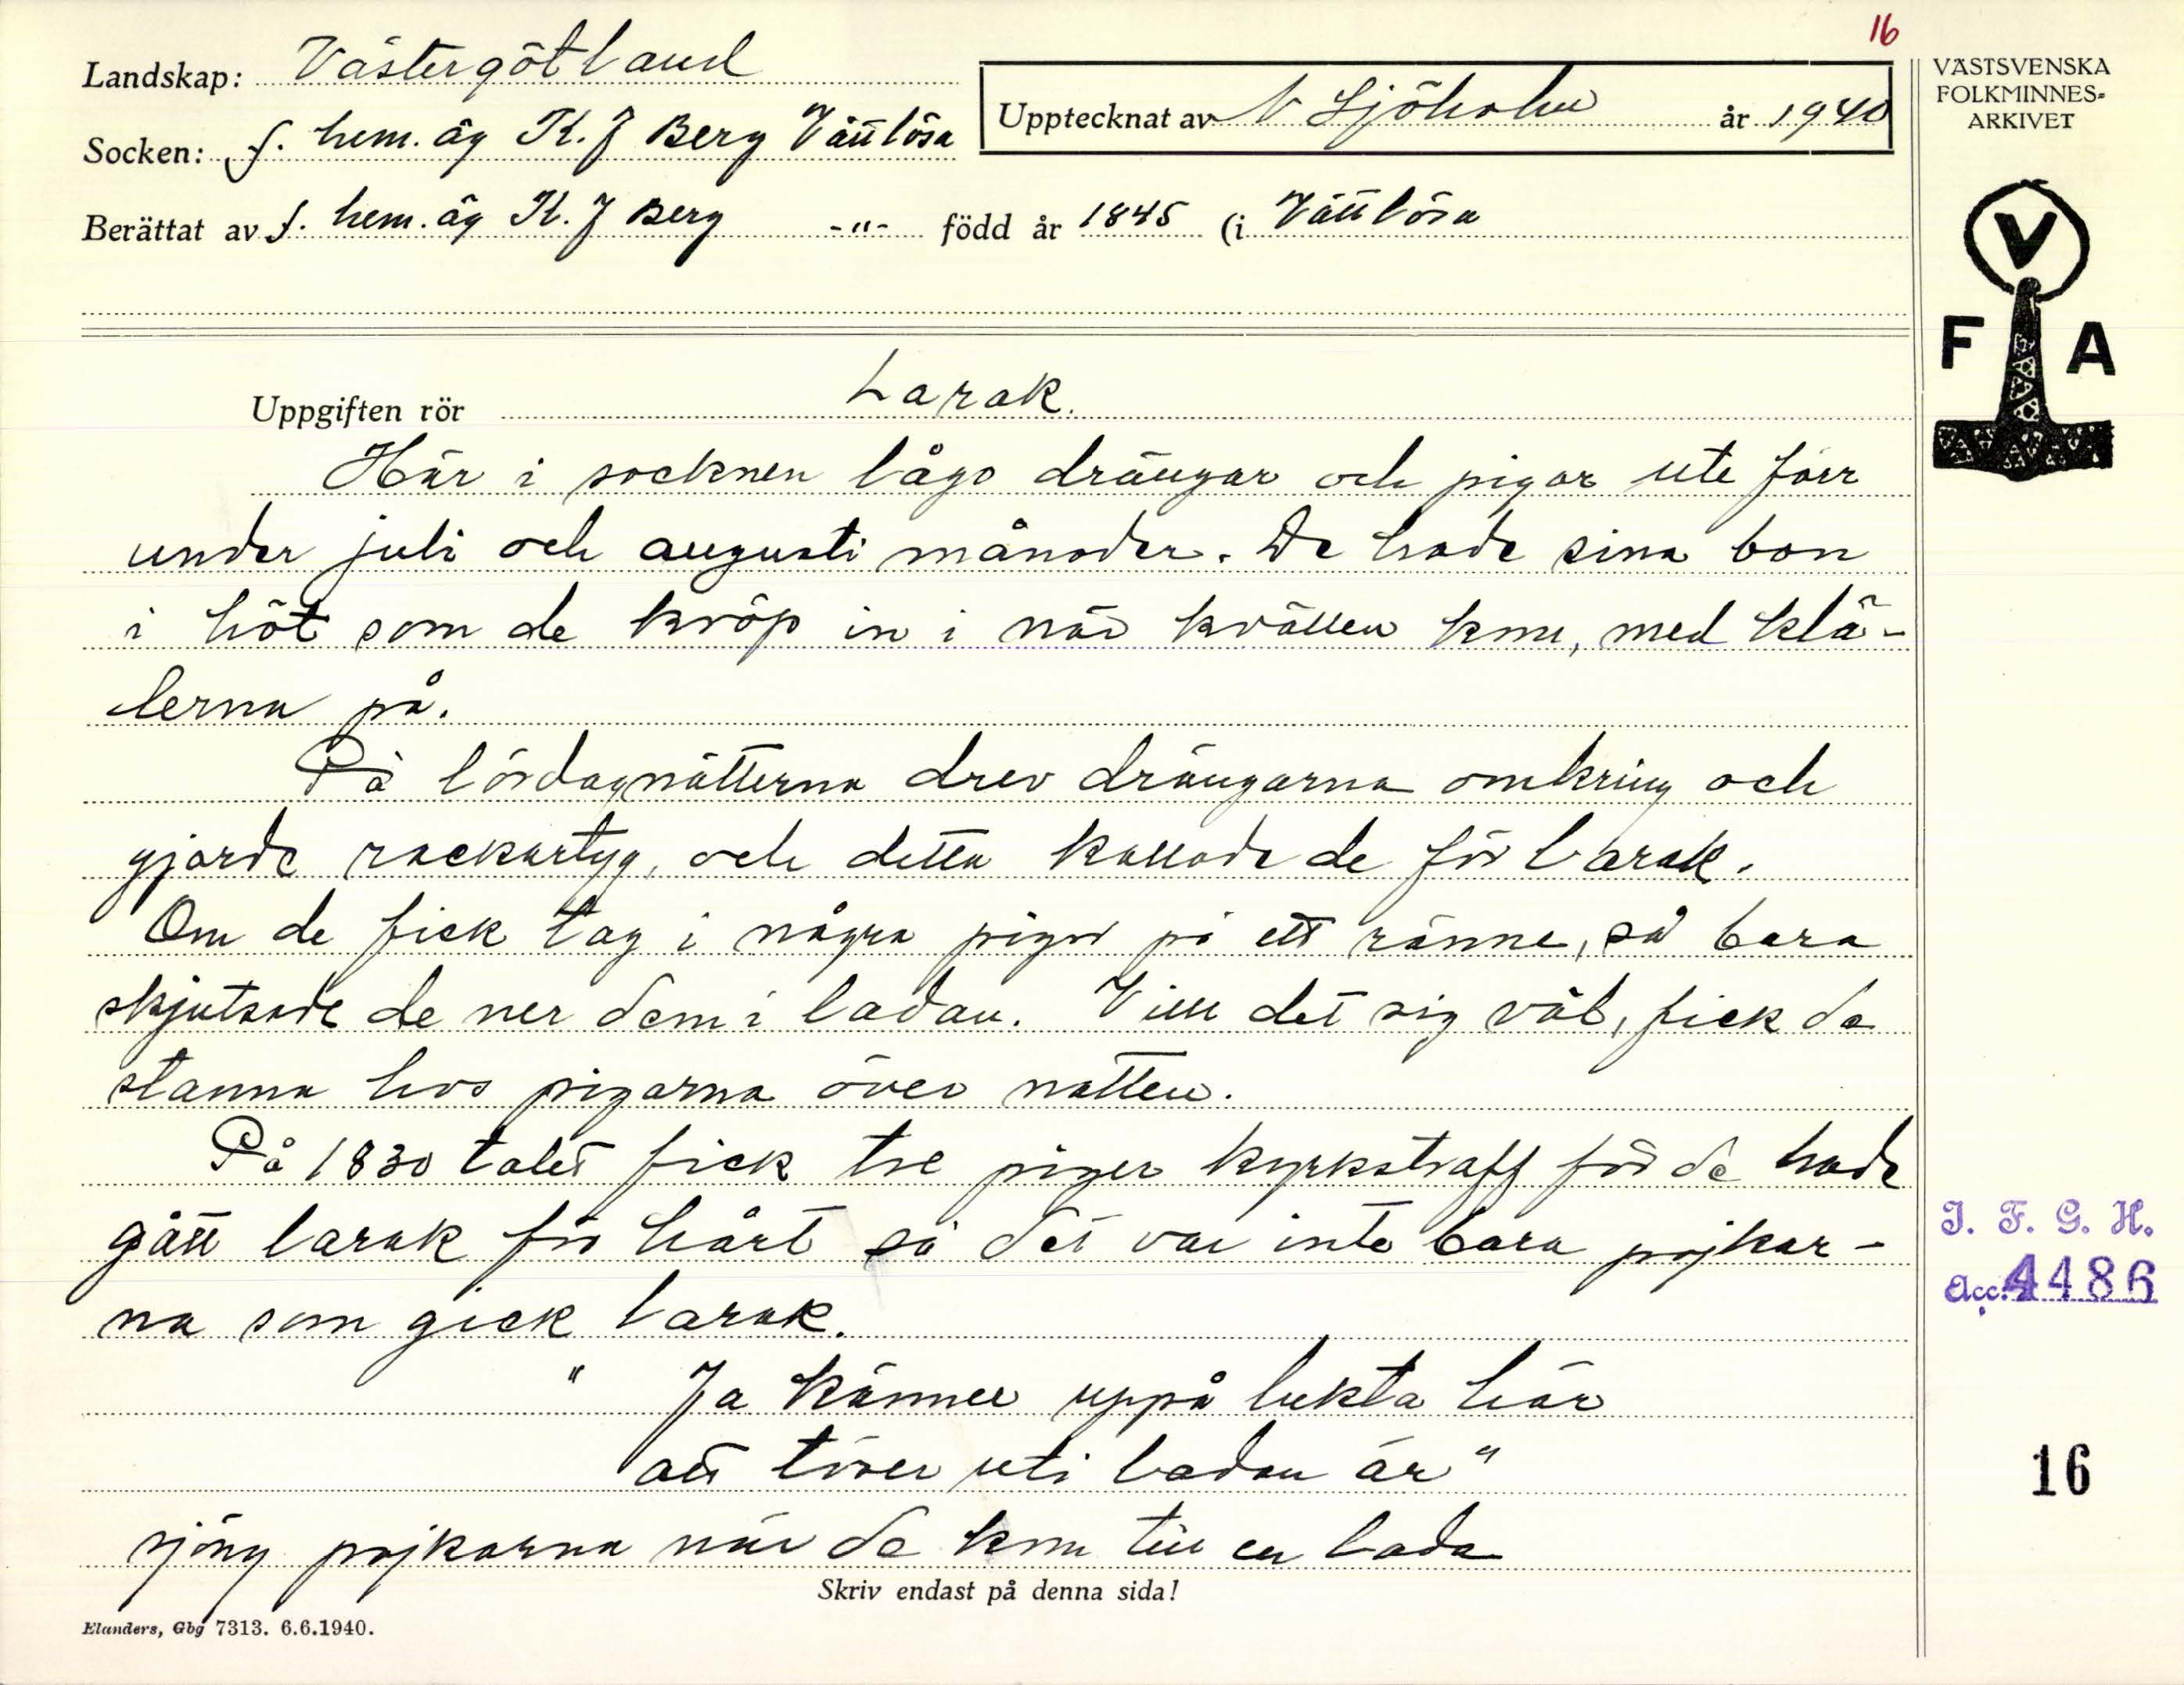 16
Landskap: Västergötland
Socken: f. hem. äg K. J Berg Vättlösa
Upptecknat av N Sjöholm år 1940
VÄSTSVENSKA
FOLKMINNES-
ARKIVET
Berättat av f. hem. äg K. J Berg -"- född år 1845 (i Vättlösa
V
F A
Uppgiften rör Larak.
Här i socknen lågo drängar och pigor ute förr
under juli och augusti månader. De hade sina bon
i höt som de kröp in i när kvällen kom, med klä-
derna på.
På lördagnätterna drev drängarna omkring och
gjorde rackartyg, och detta kallade de för larak.
Om de fick tag i några pigor på ett ränne, så bara
skjutsade de ner dem i ladan. Vill det sig väl, fick de
stanna hos pigorna över natten.
På 1830 talet fick tre piger kyrkstraff för de hade
gått larak för hårt så det var inte bara pojkar-
na som gick larak.
" Ja känner uppå lukta här
att töser uti ladan är"
sjöng pojkarna när de kom till en lada
I. F. G. H.
Acc. 4486
16
Skriv endast på denna sida!
Elanders, Gbg 7313. 6.6.1940.